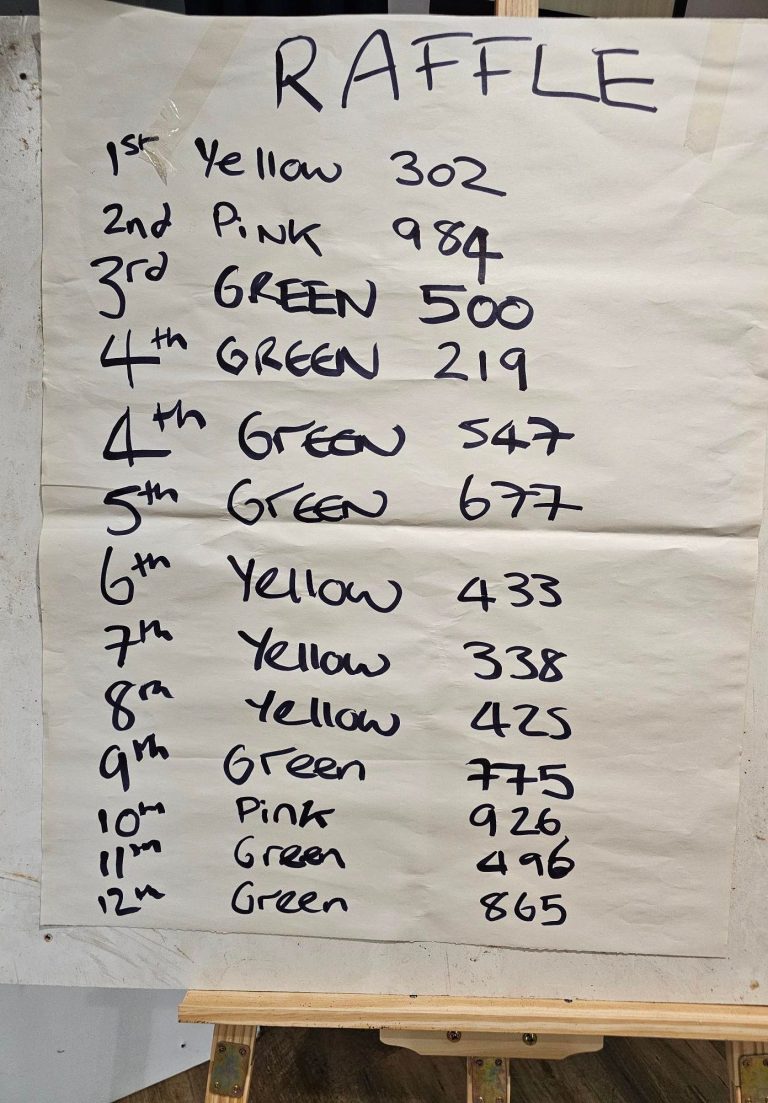 RAFFLE
1st Yellow 302
2nd PINK 984
3rd GREEN 500
4th GREEN 219
4th GrEEN 547
5th GrEEN 677
6th Yellow 433
7th Yellow 338
8th Yellow 425
9th Green 775
10th Pink 926
11th Green 496
12th Green 865